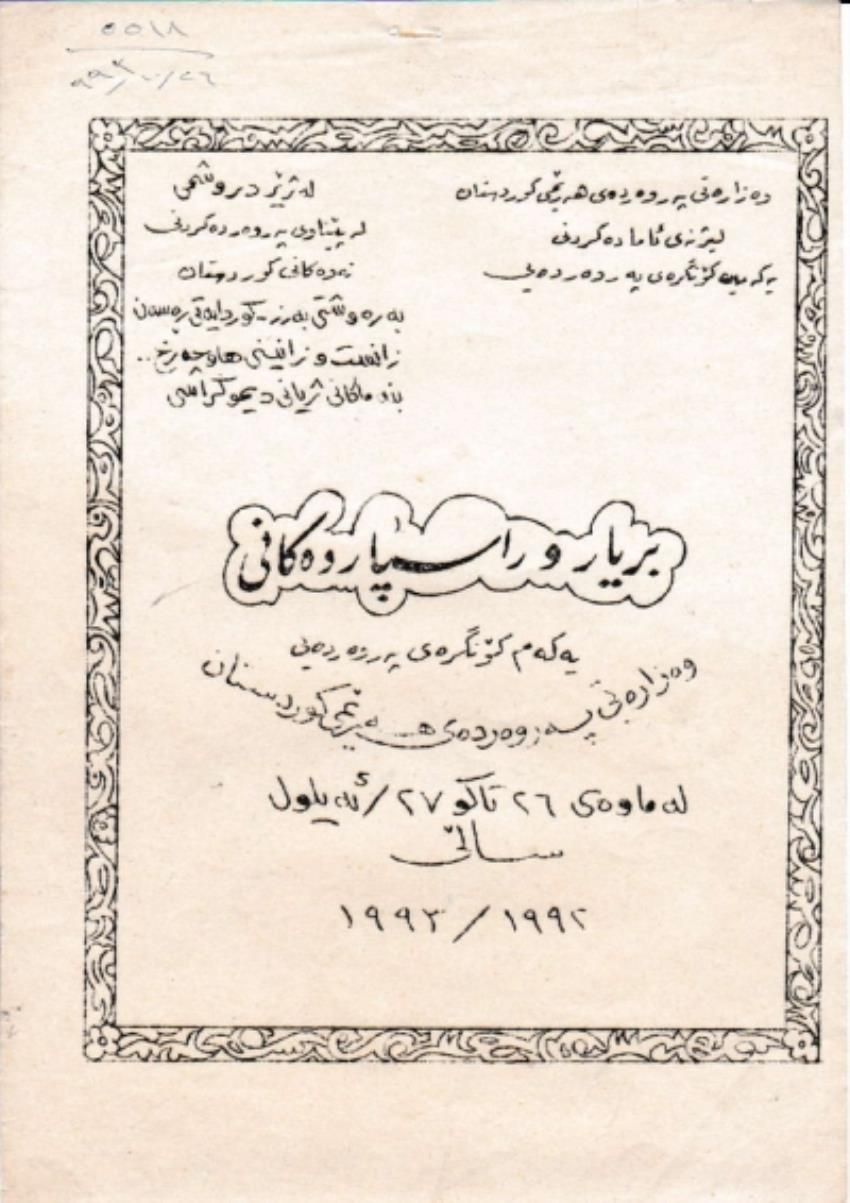 ٥٥١٨
وەزارەتی پەروەردەی هەرێمی کوردستان
لیژنەی ئامادەکردنی
یەکەمین کۆنگرەی پەروەردەیی
لەژێر دروشمی
لە پێناوی پەروەردەکردنی
نەوەکانی کوردستان
بەرەوشتی بەرز - کوردایەتی رەسەن
زانست و زانینی هاوچەرخ..
بنەماکانی ژیانی دیموکراسی
بریار و راسپاردەکانی
یەکەم کۆنگرەی پەروەردەیی
وەزارەتی پەروەردەی هەرێمی کوردستان
لە ماوەی ٢٦ تاکو ٢٧/ئەیلول
ساڵی
١٩٩٢/١٩٩٣